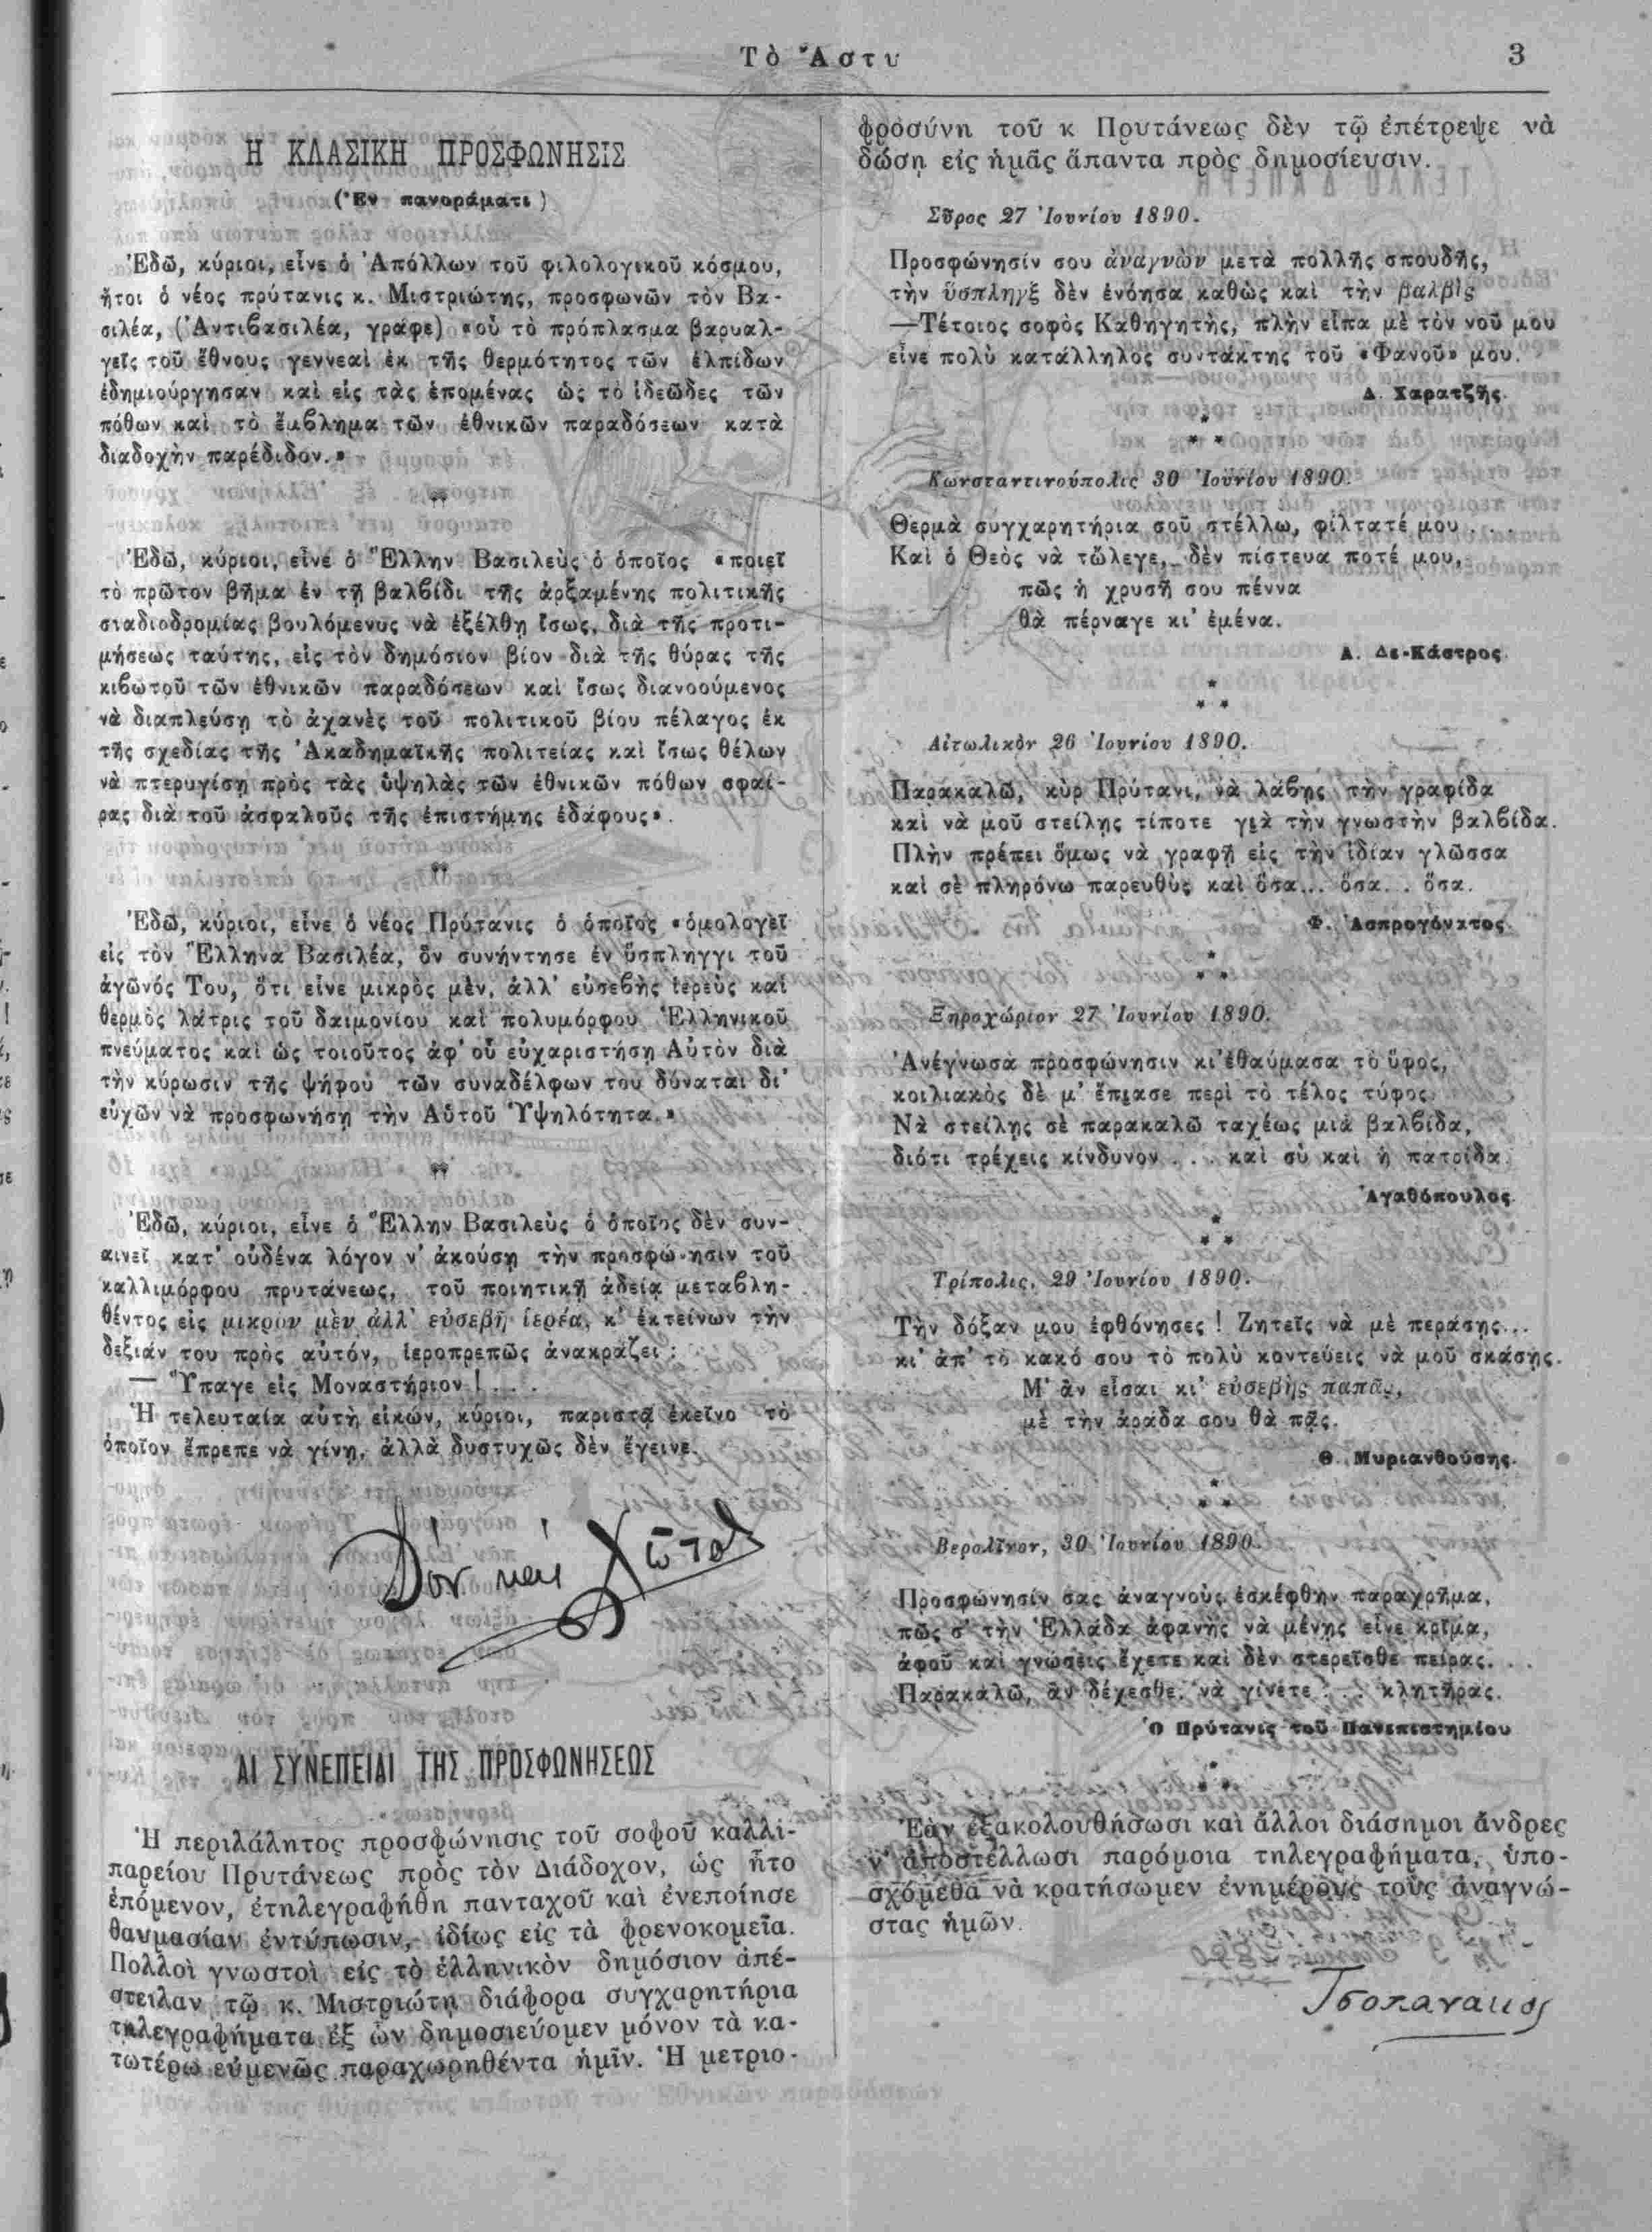 Τὸ Ἄστυ
3
Η ΚΛΑΣΙΚΗ ΠΡΟΣΦΩΝΗΣΙΣ
(Ἐν πανοράματι)
Ἐδῶ, κύριοι, εἶνε ὁ Ἀπόλλων τοῦ φιλολογικοῦ κόσμου,
ἤτοι ὁ νέος πρύτανις κ. Μιστριώτης, προσφωνῶν τὸν Βα-
σιλέα, (Ἀντιβασιλέα, γράφε) «οὗ τὸ πρόπλασμα βαρυαλ-
γεῖς τοῦ ἔθνους γεννεαὶ ἐκ τῆς θερμότητος τῶν ἐλπίδων
ἐδημιούργησαν καὶ εἰς τὰς ἑπομένας ὡς τὸ ἰδεῶδες τῶν
πόθων καὶ τὸ ἔμβλημα τῶν ἐθνικῶν παραδόσεων κατὰ
διαδοχὴν παρέδιδον.»
Ἐδῶ, κύριοι, εἶνε ὁ Ἕλλην Βασιλεὺς ὁ ὁποῖος «ποιεῖ
τὸ πρῶτον βῆμα ἐν τῇ βαλβίδι τῆς ἀρξαμένης πολιτικῆς
σταδιοδρομίας βουλόμενος νὰ ἐξέλθῃ ἴσως, διὰ τῆς προτι-
μήσεως ταύτης, εἰς τὸν δημόσιον βίον διὰ τῆς θύρας τῆς
κιβωτοῦ τῶν ἐθνικῶν παραδόσεων καὶ ἴσως διανοούμενος
νὰ διαπλεύσῃ τὸ ἀχανὲς τοῦ πολιτικοῦ βίου πέλαγος ἐκ
τῆς σχεδίας τῆς Ἀκαδημαϊκῆς πολιτείας καὶ ἴσως θέλων
νὰ πτερυγίσῃ πρὸς τὰς ὑψηλὰς τῶν ἐθνικῶν πόθων σφαί-
ρας διὰ τοῦ ἀσφαλοῦς τῆς ἐπιστήμης ἐδάφους».
Ἐδῶ, κύριοι, εἶνε ὁ νέος Πρύτανις ὁ ὁποῖος «ὁμολογεῖ
εἰς τὸν Ἕλληνα Βασιλέα, ὃν συνήντησε ἐν ὕσπληγγι τοῦ
ἀγῶνός Του, ὅτι εἶνε μικρὸς μὲν, ἀλλ' εὐσεβὴς ἱερεὺς καὶ
θερμὸς λάτρις τοῦ δαιμονίου καὶ πολυμόρφου Ἑλληνικοῦ
πνεύματος καὶ ὡς τοιοῦτος ἀφ' οὗ εὐχαριστήσῃ Αὐτὸν διὰ
τὴν κύρωσιν τῆς ψήφου τῶν συναδέλφων του δύναται δι'
εὐχῶν νὰ προσφωνήσῃ τὴν Αὑτοῦ Ὑψηλότητα.»
Ἐδῶ, κύριοι, εἶνε ὁ Ἕλλην Βασιλεὺς ὁ ὁποῖος δὲν συν-
αινεῖ κατ' οὐδένα λόγον ν' ἀκούσῃ τὴν προσφώνησιν τοῦ
καλλιμόρφου πρυτάνεως, τοῦ ποιητικῇ ἀδείᾳ μεταβλη-
θέντος εἰς μικρὸν μὲν ἀλλ' εὐσεβῆ ἱερέα, κ' ἐκτείνων τὴν
δεξιάν του πρὸς αὐτόν, ἱεροπρεπῶς ἀνακράζει:
— Ὕπαγε εἰς Μοναστήριον!....
Ἡ τελευταία αὐτὴ εἰκών, κύριοι, παριστᾷ ἐκεῖνο τὸ
ὁποῖον ἔπρεπε νὰ γίνῃ, ἀλλὰ δυστυχῶς δὲν ἔγεινε.
Δὸν καὶ Χῶτος
ΑΙ ΣΥΝΕΠΕΙΑΙ ΤΗΣ ΠΡΟΣΦΩΝΗΣΕΩΣ
Ἡ περιλάλητος προσφώνησις τοῦ σοφοῦ καλλι-
παρείου Πρυτάνεως πρὸς τὸν Διάδοχον, ὡς ἦτο
ἑπόμενον, ἐτηλεγραφήθη πανταχοῦ καὶ ἐνεποίησε
θαυμασίαν ἐντύπωσιν, ἰδίως εἰς τὰ φρενοκομεῖα.
Πολλοὶ γνωστοὶ εἰς τὸ ἑλληνικὸν δημόσιον ἀπέ-
στειλαν τῷ κ. Μιστριώτῃ διάφορα συγχαρητήρια
τηλεγραφήματα ἐξ ὧν δημοσιεύομεν μόνον τὰ κα-
τωτέρω εὐμενῶς παραχωρηθέντα ἡμῖν. Ἡ μετριο-
φροσύνη τοῦ κ Πρυτάνεως δὲν τῷ ἐπέτρεψε νὰ
δώσῃ εἰς ἡμᾶς ἅπαντα πρὸς δημοσίευσιν.
Σῦρος 27 Ἰουνίου 1890.
Προσφώνησίν σου ἀναγνὼν μετὰ πολλῆς σπουδῆς,
τὴν ὕσπληγξ δὲν ἐνόησα καθὼς καὶ τὴν βαλβὶς
—Τέτοιος σοφὸς Καθηγητὴς, πλὴν εἶπα μὲ τὸν νοῦ μου
εἶνε πολὺ κατάλληλος συντάκτης τοῦ «Φανοῦ» μου.
Δ. Χαρατζῆς.
* * *
Κωνσταντινούπολις 30 Ἰουνίου 1890.
Θερμὰ συγχαρητήρια σοῦ στέλλω, φίλτατέ μου ...
Καὶ ὁ Θεὸς νὰ τὤλεγε, δὲν πίστευα ποτέ μου,
πῶς ἡ χρυσῆ σου πέννα
θὰ πέρναγε κι' ἐμένα.
Α. Δε-Κάστρος.
* * *
Αἰτωλικὸν 26 Ἰουνίου 1890.
Παρακαλῶ, κὺρ Πρύτανι, νὰ λάβῃς τὴν γραφίδα
καὶ νὰ μοῦ στείλῃς τίποτε γιὰ τὴν γνωστὴν βαλβίδα.
Πλὴν πρέπει ὅμως νὰ γραφῇ εἰς τὴν ἰδίαν γλῶσσα
καὶ σὲ πληρόνω παρευθὺς καὶ ὅσα... ὅσα.. ὅσα.
Φ. Ἀσπρογόνατος.
* * *
Ξηροχώριον 27 Ἰουνίου 1890.
Ἀνέγνωσα προσφώνησιν κι' ἐθαύμασα τὸ ὕφος,
κοιλιακὸς δὲ μ' ἔπιασε περὶ τὸ τέλος τύφος.
Νὰ στείλῃς σὲ παρακαλῶ ταχέως μιὰ βαλβίδα,
διότι τρέχεις κίνδυνον ... καὶ σὺ καὶ ἡ πατρίδα.
Ἀγαθόπουλος.
* * *
Τρίπολις, 29 Ἰουνίου 1890.
Τὴν δόξαν μου ἐφθόνησες! Ζητεῖς νὰ μὲ περάσῃς...
κι' ἀπ' τὸ κακό σου τὸ πολὺ κοντεύεις νὰ μοῦ σκάσῃς.
Μ' ἂν εἶσαι κι' εὐσεβὴς παπᾶς,
μὲ τὴν ἀράδα σου θὰ πᾷς.
Θ. Μυριανθούσης.
* * *
Βερολῖνον, 30 Ἰουνίου 1890.
Προσφώνησίν σας ἀναγνοὺς ἐσκέφθην παραχρῆμα,
πῶς σ' τὴν Ἑλλάδα ἀφανὴς νὰ μένῃς εἶνε κρῖμα,
ἀφοῦ καὶ γνώσεις ἔχετε καὶ δὲν στερεῖσθε πείρας...
Παρακαλῶ, ἂν δέχεσθε, νὰ γίνετε ... κλητῆρας.
Ὁ Πρύτανις τοῦ Πανεπιστημίου
* * *
Ἐὰν ἐξακολουθήσωσι καὶ ἄλλοι διάσημοι ἄνδρες
ν' ἀποστέλλωσι παρόμοια τηλεγραφήματα, ὑπο-
σχόμεθα νὰ κρατήσωμεν ἐνημέρους τοὺς ἀναγνώ-
στας ἡμῶν.
Τσοπανακος